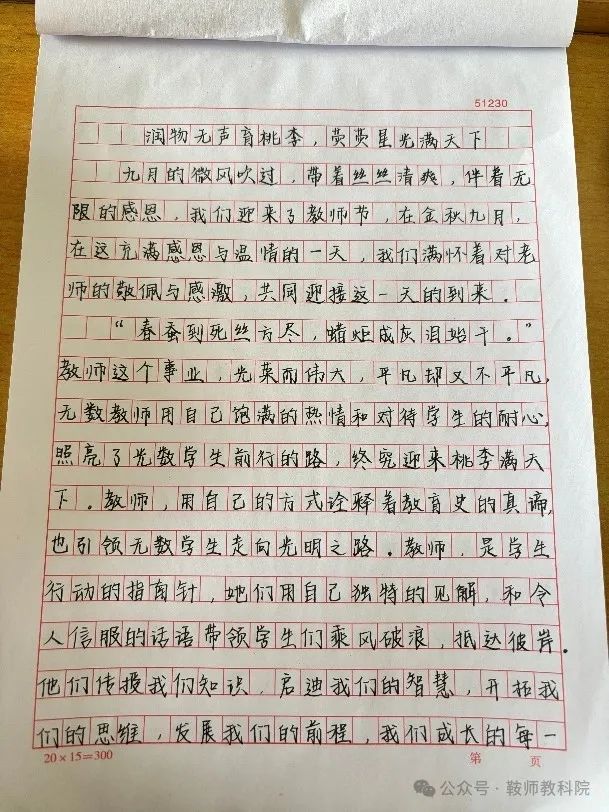 51230
润物无声育桃李，荧荧星光满天下
九月的微风吹过，带着丝丝清爽，伴着无
限的感恩，我们迎来了教师节，在金秋九月，
在这充满感恩与温情的一天，我们满怀着对老
师的敬佩与感激，共同迎接这一天的到来．
“春蚕到死丝方尽，蜡炬成灰泪始干。”
教师这个事业，光荣而伟大，平凡却又不平凡，
无数教师用自己饱满的热情和对待学生的耐心，
照亮了光数学生前行的路，终究迎来桃李满天
下．教师，用自己的方式诠释着教育史的真谛，
也引领无数学生走向光明之路．教师，是学生
行动的指南针，她们用自己独特的见解，和令
人信服的话语带领学生们乘风破浪，抵达彼岸．
他们传授我们知识，启迪我们的智慧，开拓我
们的思维，发展我们的前程，我们成长的每一
20×15=300 第 页
公众号·鞍师教科院